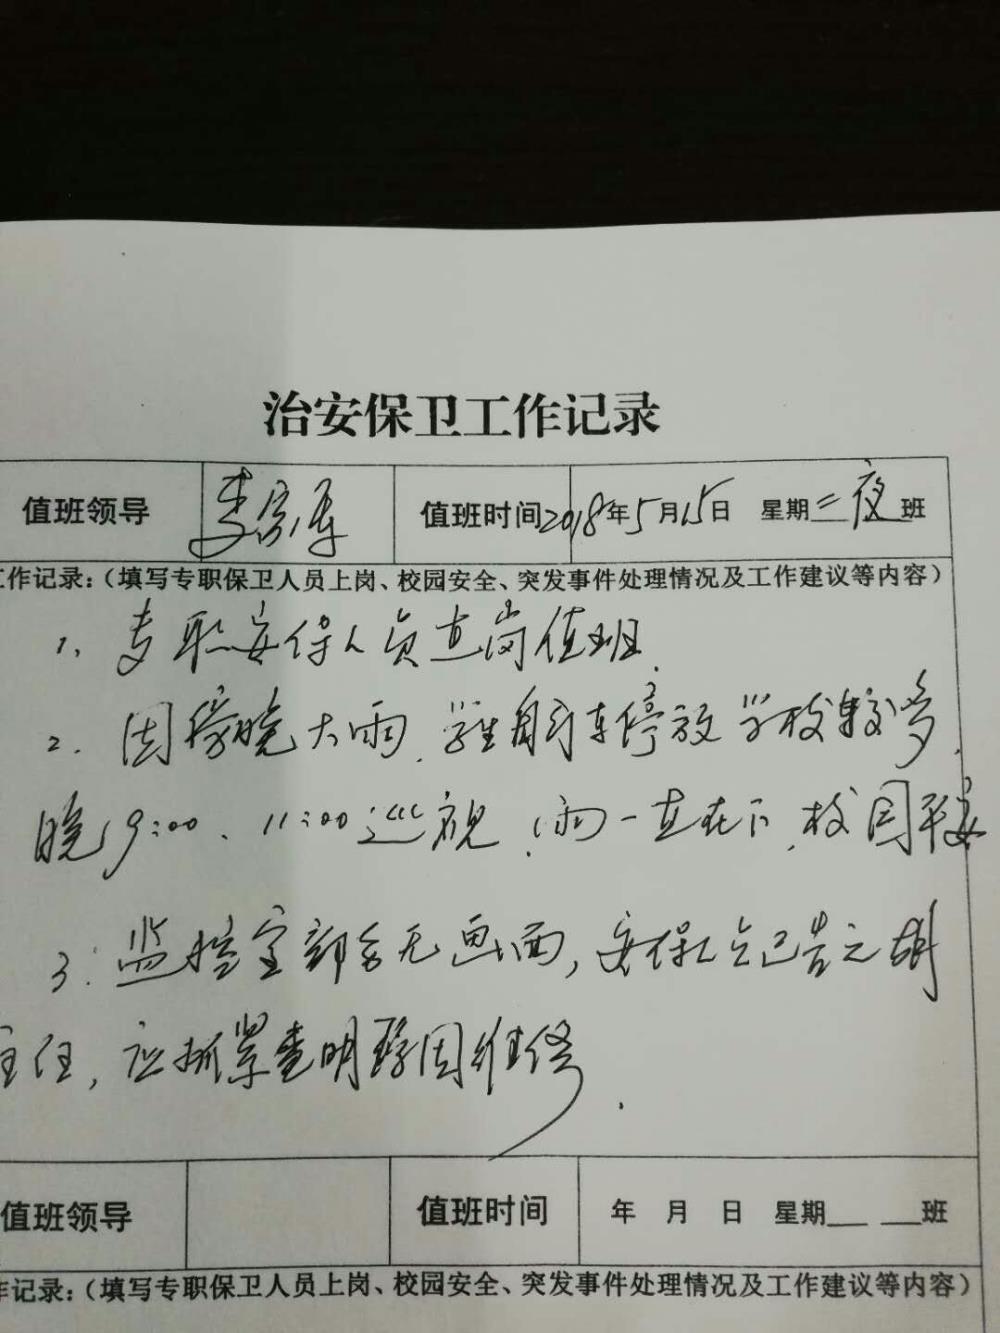 治安保卫工作记录
值班领导 李 值班时间 2018年5月15日 星期二 夜班
工作记录：（填写专职保卫人员上岗、校园安全、突发事件处理情况及工作建议等内容）
1、专职安保人员在岗值班.
2. 因傍晚大雨，学生自行车停放学校较多，
晚9:00、11:00巡视，雨一直在下，校园平安
3：监控室部分无画面，安保人员已告之胡
主任，应抓紧查明原因维修.
值班领导 值班时间 年 月 日 星期 班
作记录：（填写专职保卫人员上岗、校园安全、突发事件处理情况及工作建议等内容）